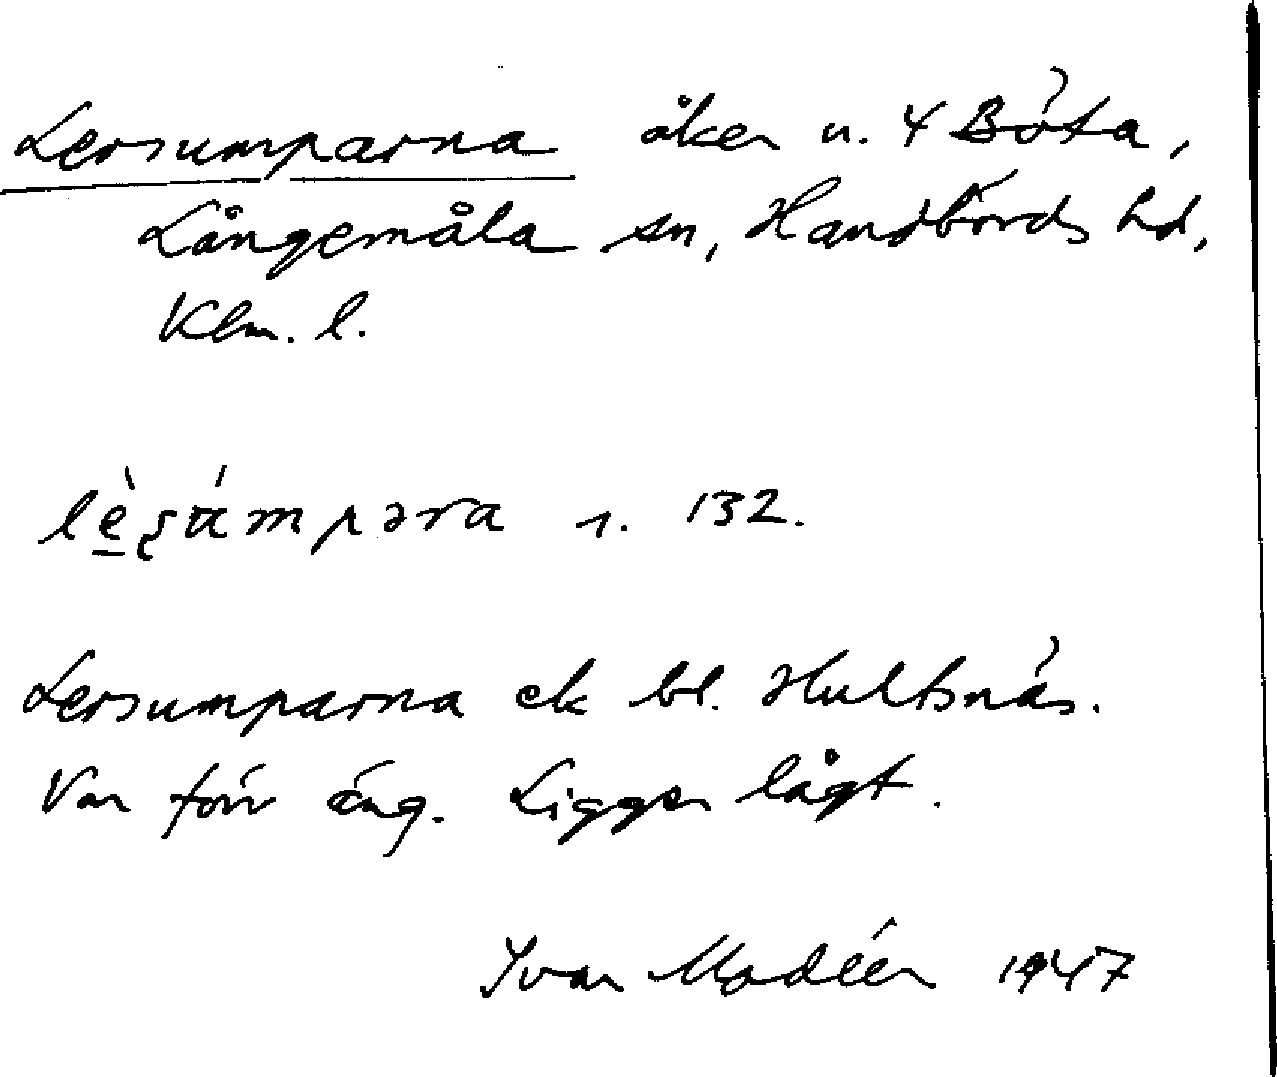 Lersumparna åker u. 4 Böta,
Långemåla sn, Handbörds hd,
Klm. l.
lèṣúmpəra r. 132.
Lersumparna ek bl. Hultsnäs.
Var förr äng. Ligger lågt.
Ivar Modéer 1947